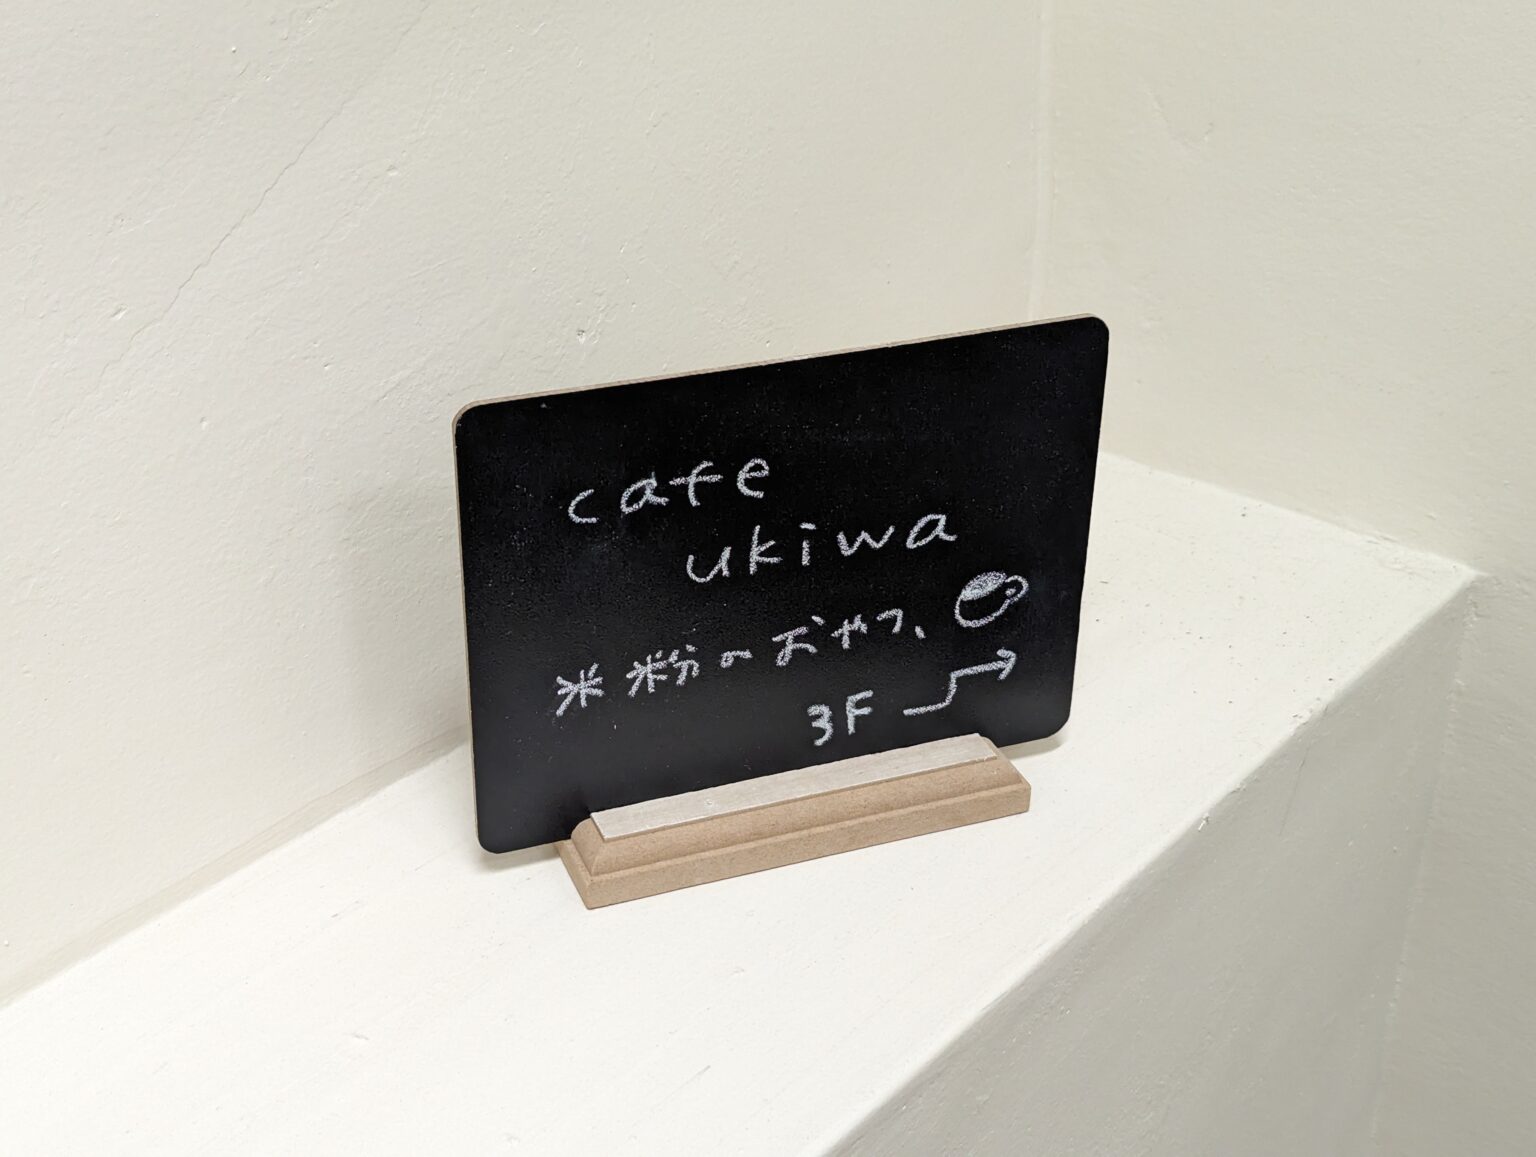 cafe
ukiwa
米 米粉のおやつ、
3F